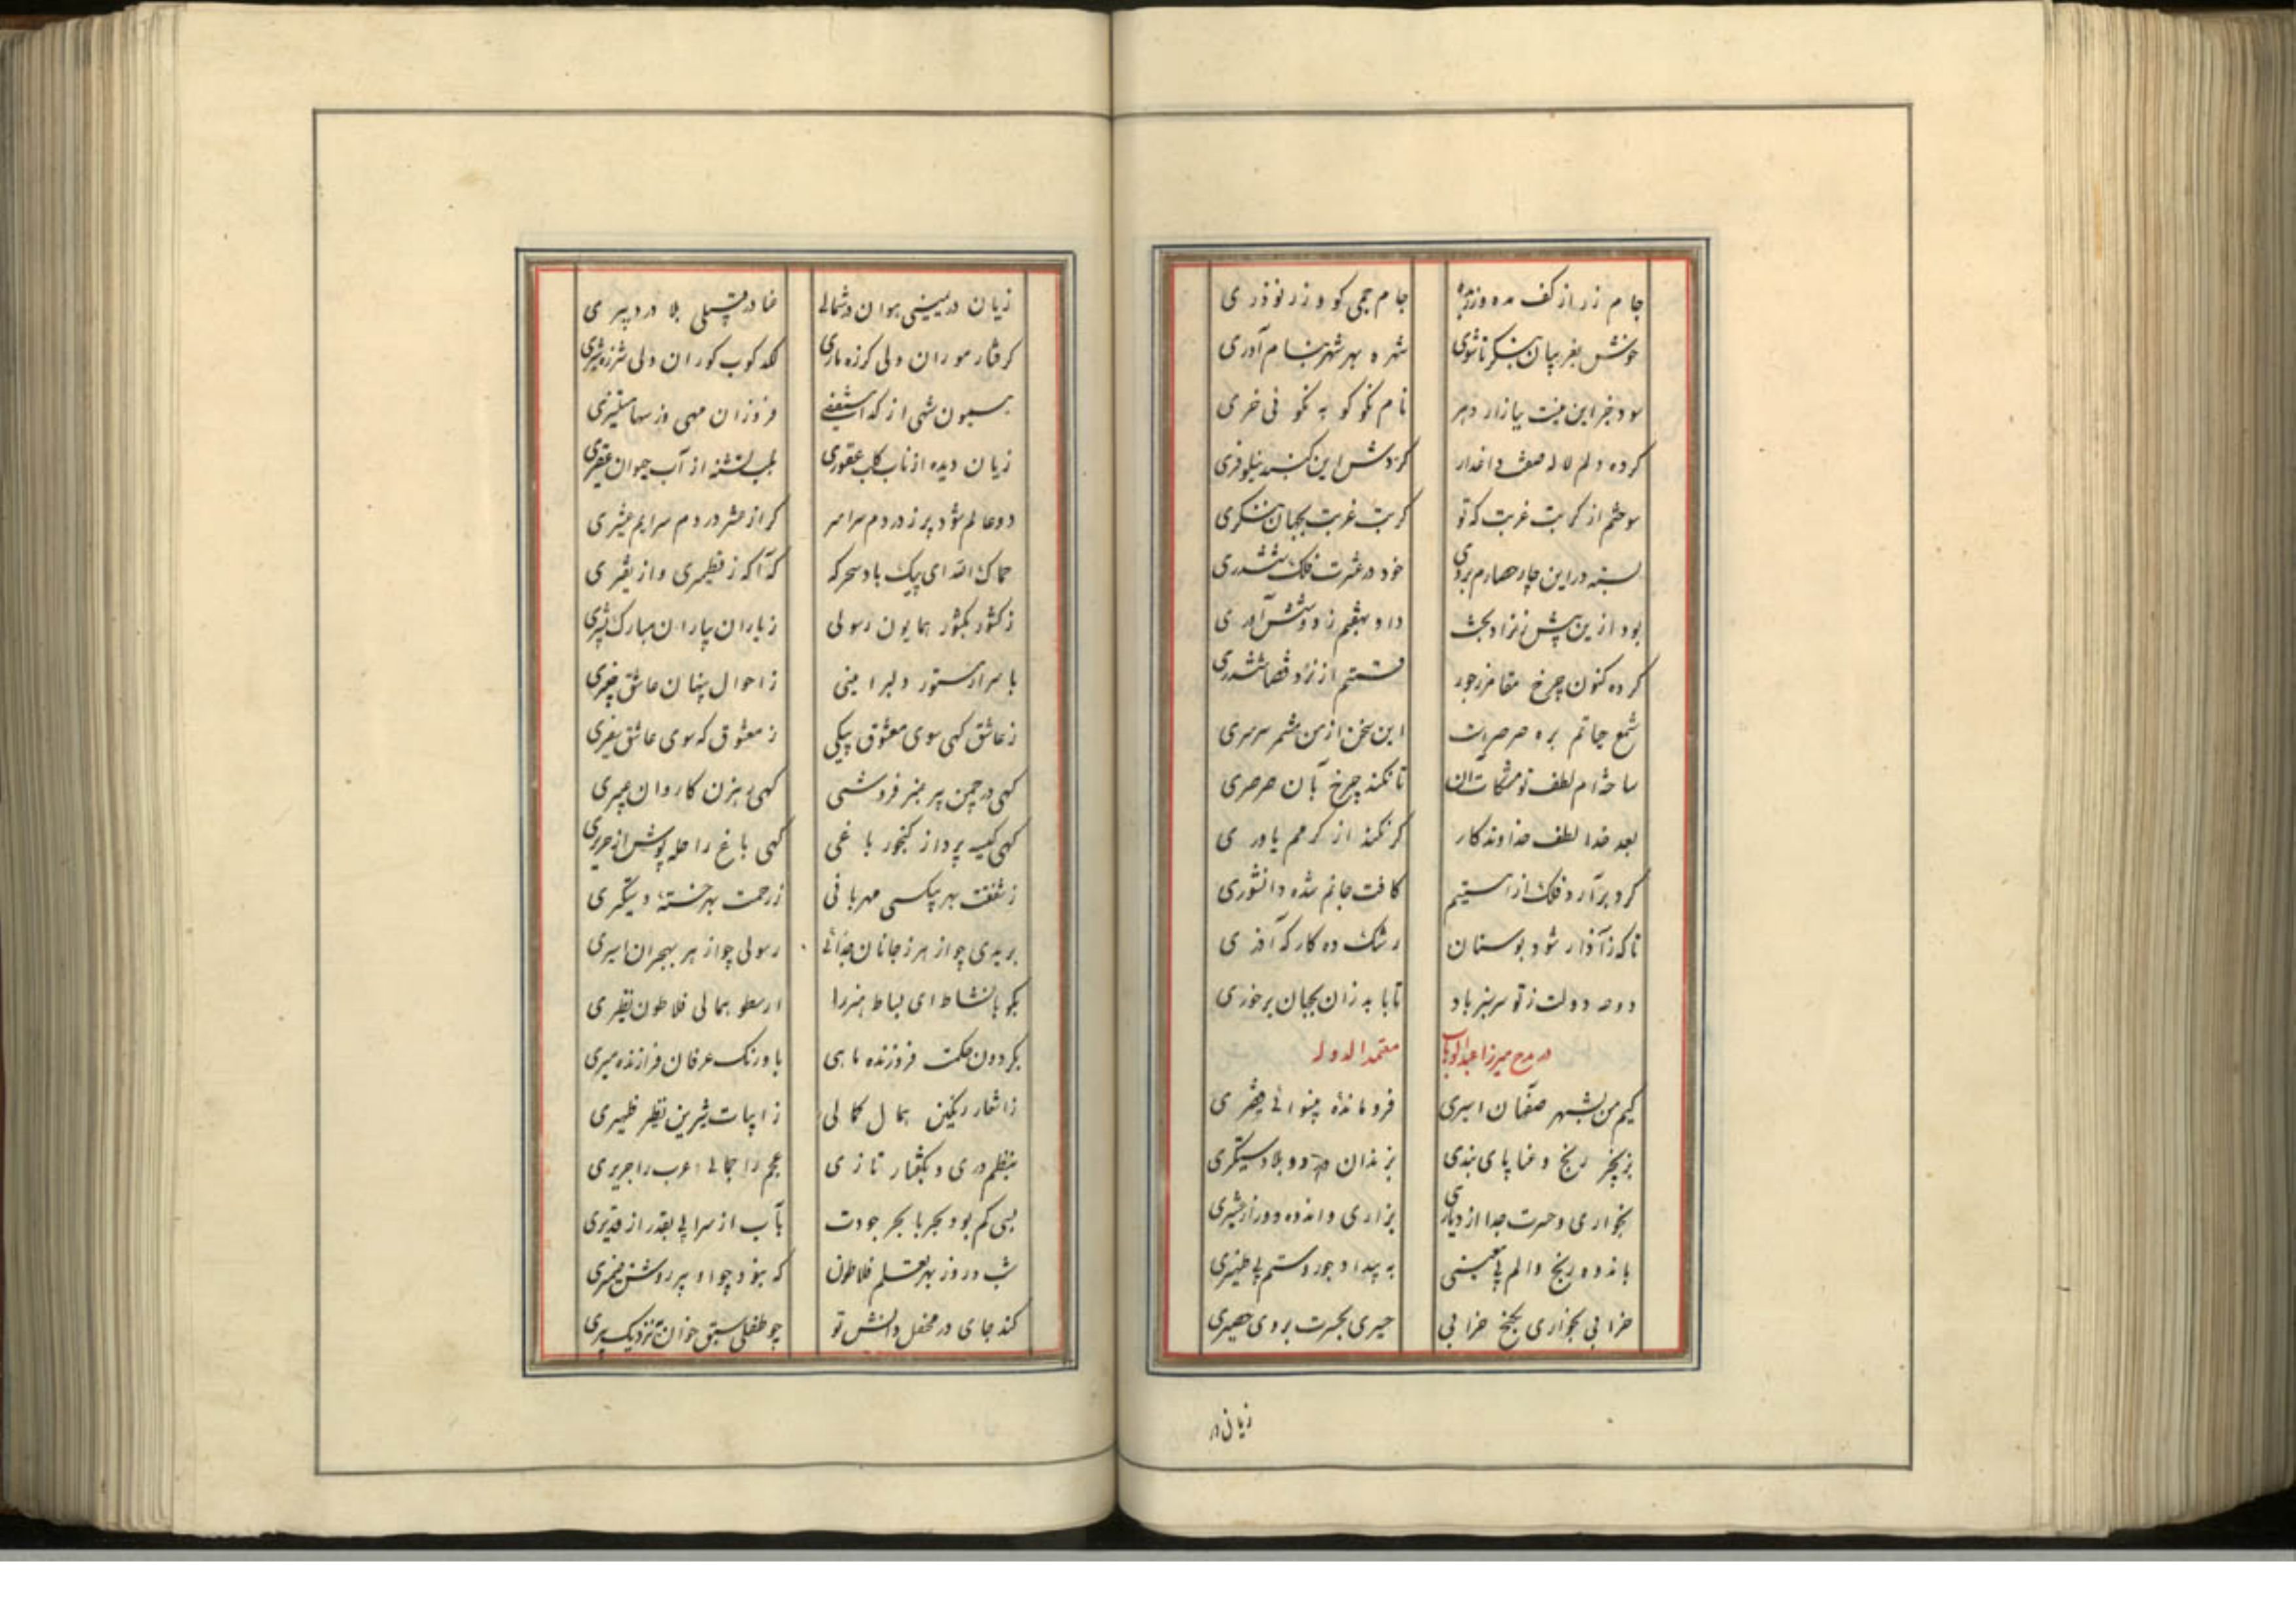 جام زر از کف مده و زر بده جام جمی کو و زر نوذری
خوش بغریبان بنگر تا شوی شهره بهر شهر بنام آوری
سود جز این نیست ببازار دهر نام نکو کو به نکو فی خری
کرده دلم لاله صفت داغدار گردش این گنبد نیلوفری
سوختم از کربت غربت که تو کربت غربت بجهان بنگری
بسته در این چار حصارم بروی خود در عشرت فلک ششدری
بود ازین پیش نراد بخت داو بهفتم زدو شش آوری
کرده کنون چرخ مقامر ز جور قسمتم از نرد قضا ششدری
شمع حیاتم بره صرصر است این سخن از من مشمر سرسری
ساخته‌ام لطف تو مشکات آن تا نکند چرخ بآن صرصری
بعد خدا لطف خداوندکار گر نکند از کرمم یاوری
گرد برآرد فلک از هستیم کافت جانم شده دانشوری
تا که ز آذار شود بوستان رشک ده کارگه آذری
دوحه دولت ز تو سرسبز باد تا بابد زان بجهان برخوری
در مدح میرزا عبدالوهاب معتمدالدوله
کیم من بشهر صفاهان اسیری فرومانده بینوائی فقیری
بزنجیر رنج و عنا پای بندی بزندان درد و بلا دستگیری
بخواری و حسرت جدا از دیاری بزاری و اندوه دور از عشیری
باندوه و رنج و الم بی معینی به بیداد و جور و ستم بی ظهیری
خرابی بخواری بکنج خرابی حسیری بحسرت بروی حصیری
زیان در
زیان در یمینی هوان در شمالی عنا در قتیلی بلا در دبیری
گرفتار موران ولی گرزه ماری لگدکوب گوران ولی شرزه شیری
بسیون شهی از گدا مستغنی فروزان مهی وز سها مستنیری
زیان دیده از ناب کلب عقوری بلب تشنه از آب حیوان عقیری
دو عالم شود پر ز دردم سراسر گر از عشر دردم سرایم عشیری
حماک الله ای پیک باد سحرگه که آگه ز قطمیری و از نقیری
ز کشور بکشور همایون رسولی ز یاران بیاران مبارک بشیری
باسرار مستور دلبر امینی ز احوال پنهان عاشق خبیری
ز عاشق گهی سوی معشوق پیکی ز معشوق گه سوی عاشق سفیری
گهی در چمن پیر عنبر فروشی گهی رهزن کاروان عبیری
گهی کیسه پرداز گنجور باغی گهی باغ را حله پوش از حریری
ز شفقت بهر بیکسی مهربانی ز رحمت بهر خسته دستگیری
بریدی چو از هر ز جانان جدائی رسولی چو از هر بهجران اسیری
بگو با نشاط ای بساط هنر را ارسطو همالی فلاطون نظیری
بگردون حکمت فروزنده ماهی باورنگ عرفان فرازنده میری
ز اشعار رنگین همال کمالی ز ابیات شیرین نظیر ظهیری
بنظم دری و بگفتار تازی عجم را جمالی عرب را جریری
بسی کم بود بحر با بحر جودت بآب از سرابی بقدر از غدیری
شب و روز بهر تعلم فلاطون که نبود چو او پیر روشن ضمیری
کند جای در محفل دانش تو چو طفلی سبق خوان بنزدیک پیری